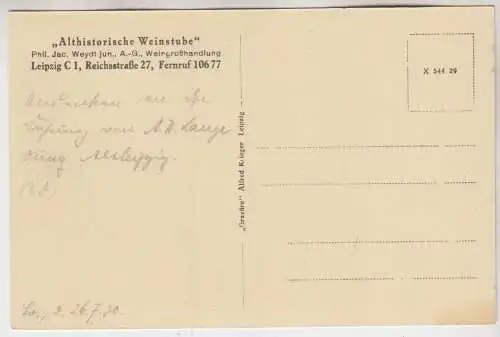 „Althistorische Weinstube"
Phil. Jac. Weydt jun., A.-G., Weingroßhandlung
Leipzig C 1, Reichsstraße 27, Fernruf 10677
X 544 29
Andenken an die
von A. W. Lange
26.7.30
„Graziea" Alfred Krieger Leipzig